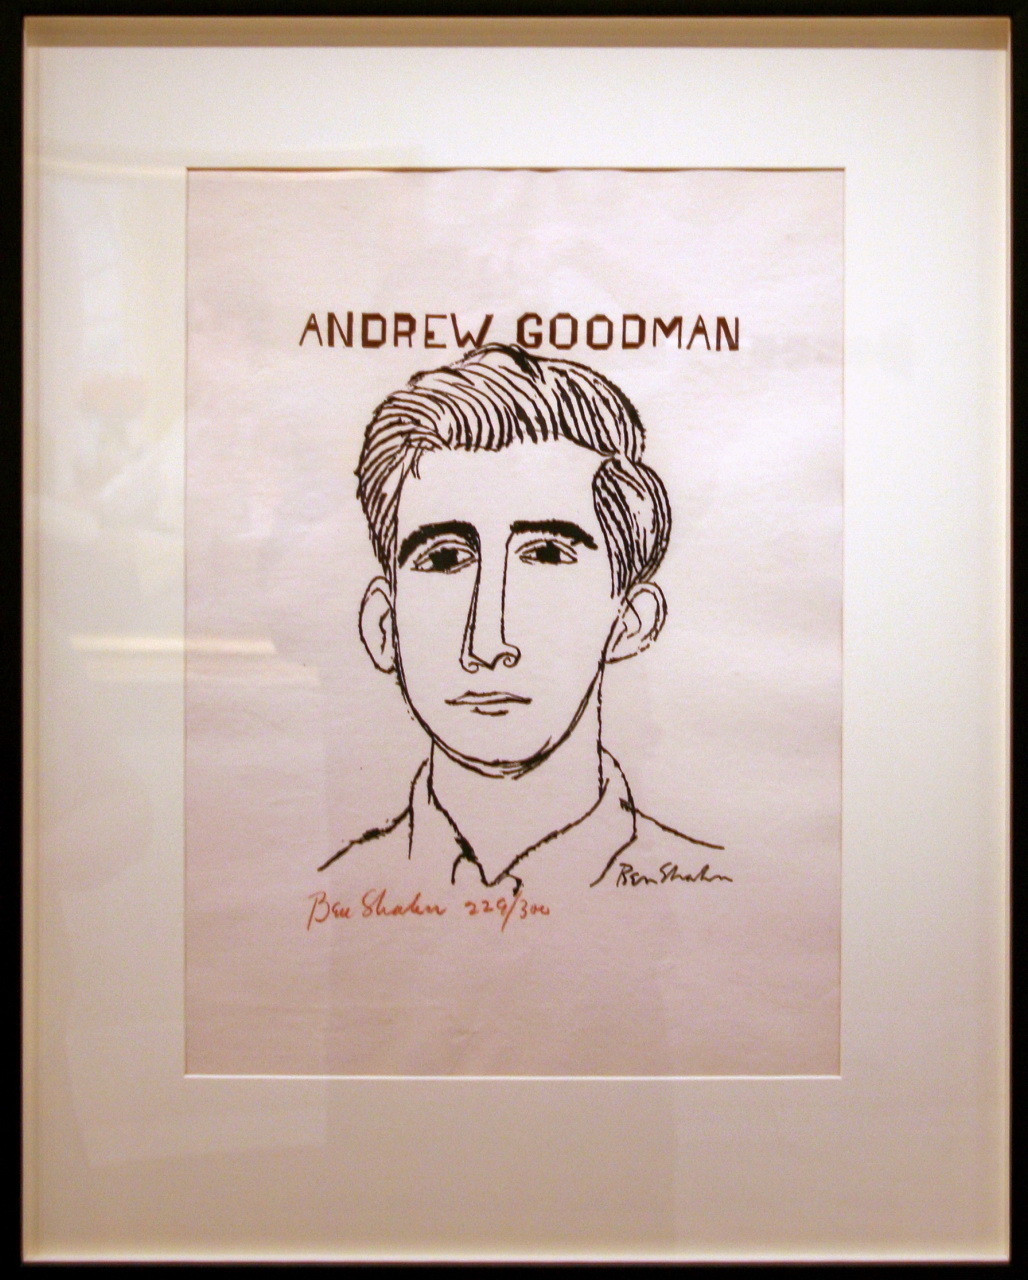 ANDREW GOODMAN
Ben Shahn
Ben Shahn 229/300